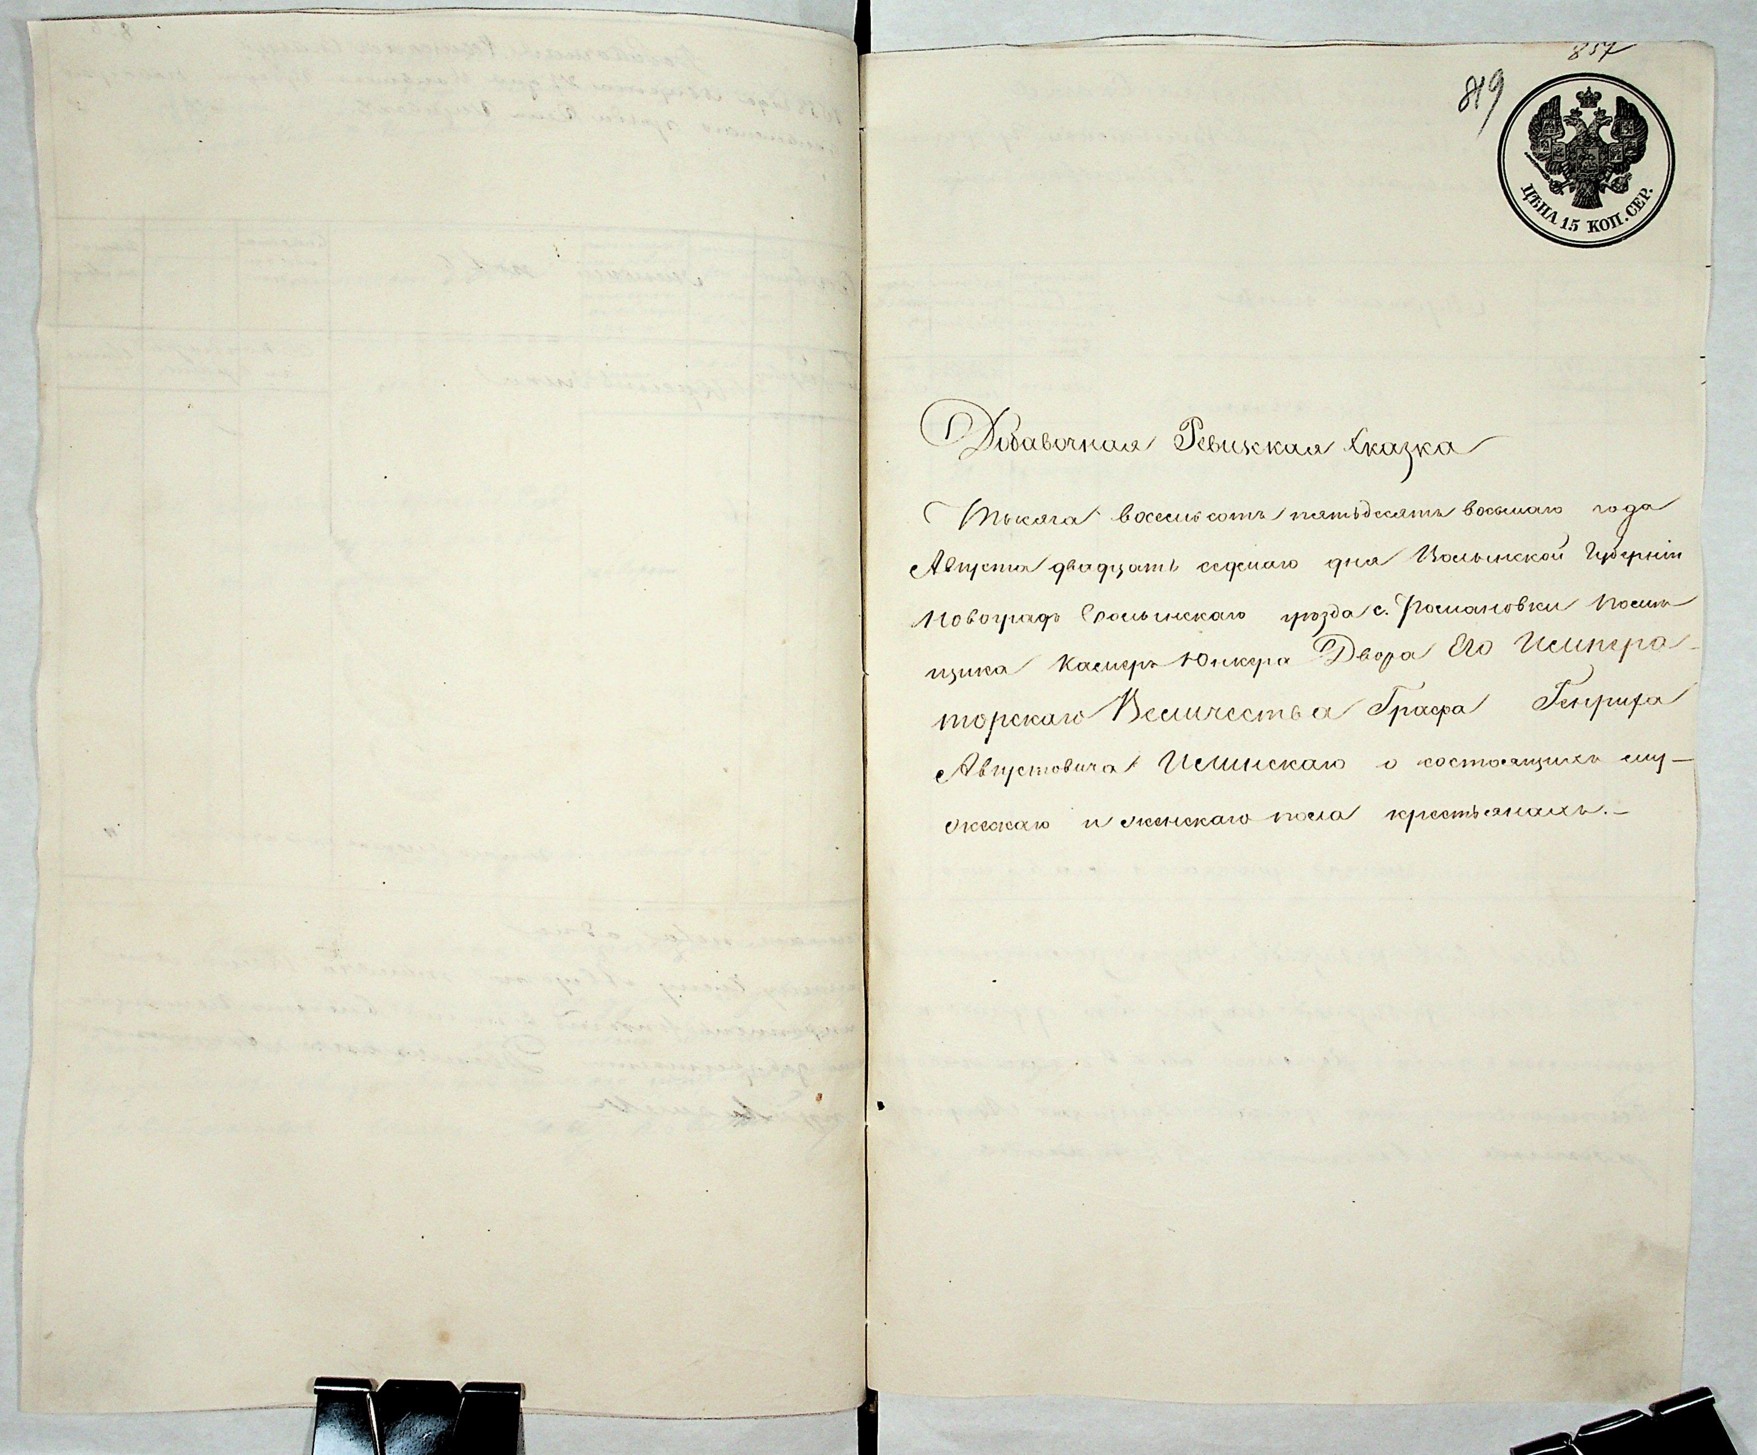 857
819
ЦѢНА 15 КОП. СЕР.
Добавочная Ревизская Сказка
Тысяча восемьсотъ пятьдесятъ восьмаго года
Августа двадцать седьмаго дня Волынской Губерніи
Новоградъ Волынскаго уѣзда с. Романовки Помѣ
щика Камеръ Юнкера Двора Его Импера-
торскаго Величества Графа Генриха
Августовича Илинскаго о состоящихъ му-
жескаго и женскаго пола крестьянахъ.-